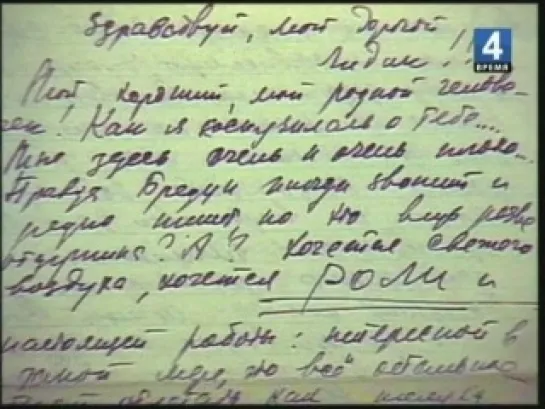 4
ВРЕМЯ
Здравствуй, мой дорогой
Лидик!!
Мой хороший, мой родной челове-
чек! Как я соскучилась о тебе....
Мне здесь очень и очень плохо...
Правда Бредун иногда звонит и
редко пишет, но это
? А? Хочется свежего
воздуха, хочется РОЛИ и
настоящей работы: интересной в
мере, это всё остальное
как